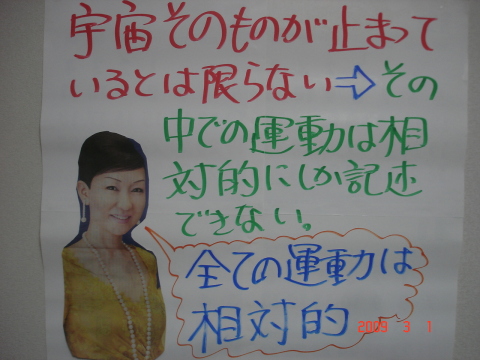 宇宙そのものが止まって
いるとは限らない⇨その
中での運動は相
対的にしか記述
できない。
全ての運動は
相対的
2009 3 1